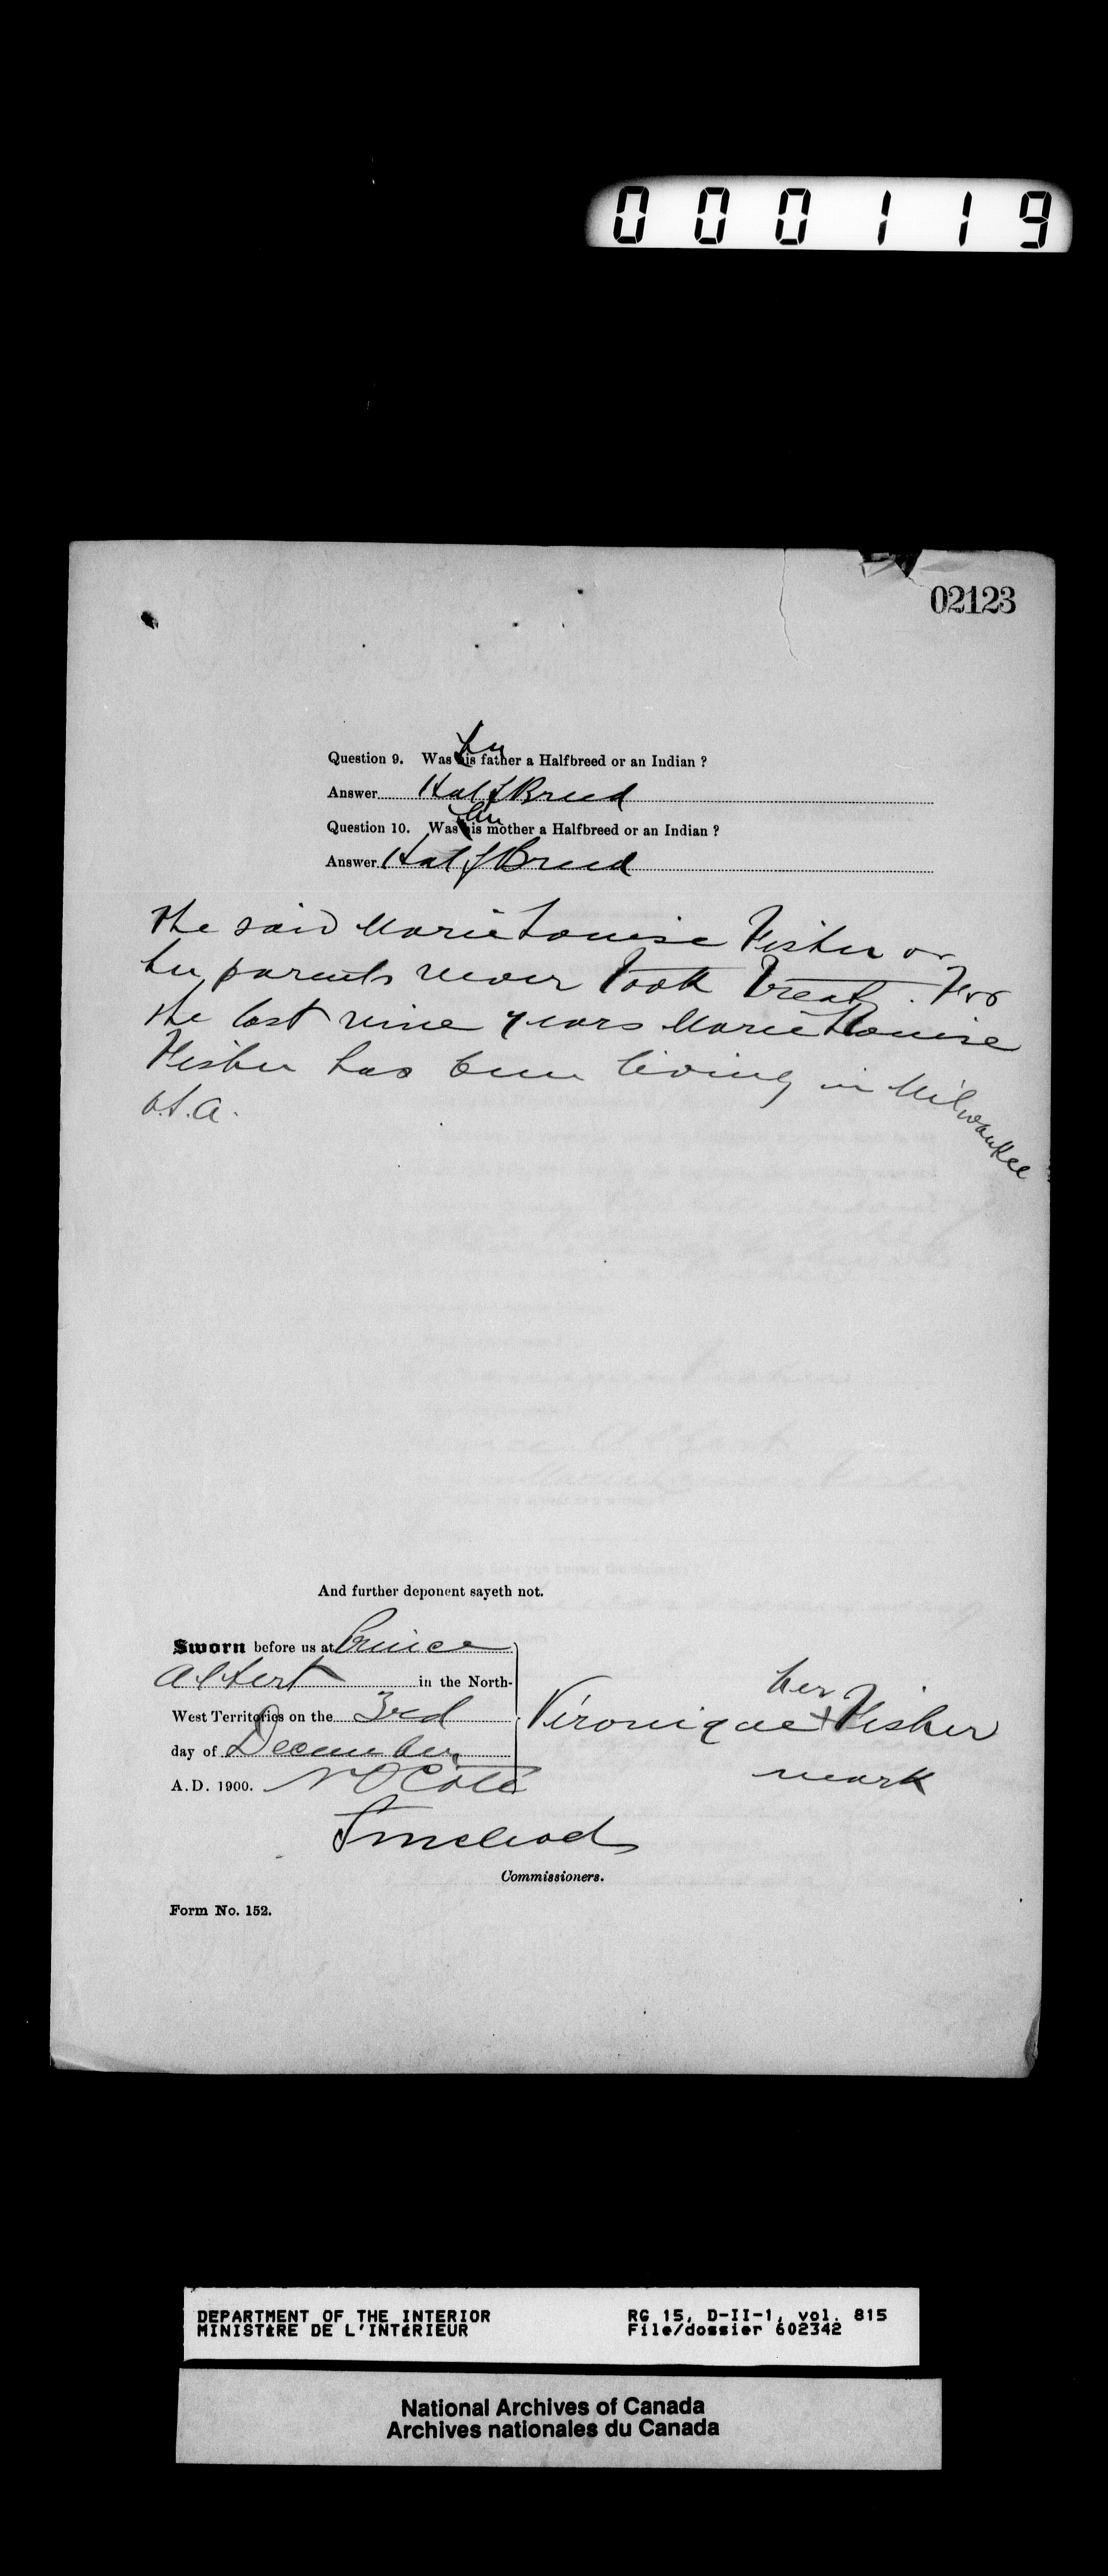 000119
02123
her
Question 9. Was his father a Halfbreed or an Indian ?
Answer Half Breed
her
Question 10. Was his mother a Halfbreed or an Indian ?
Answer Half Breed
the said Marie Louise Fisher or
her parents never Took Treaty. For
the last nine years Marie Louise
Fisher has been living in Milwaukee
U.S.A.
And further deponent sayeth not.
Sworn before us at Prince
Albert in the North-
West Territories on the 3rd
day of December
A.D. 1900. N O Coté
her
Véronique + Fisher
mark
J McLeod
Commissioners.
Form No. 152.
DEPARTMENT OF THE INTERIOR RG 15, D-II-1, vol. 815
MINISTÈRE DE L'INTÉRIEUR File/dossier 602342
National Archives of Canada
Archives nationales du Canada